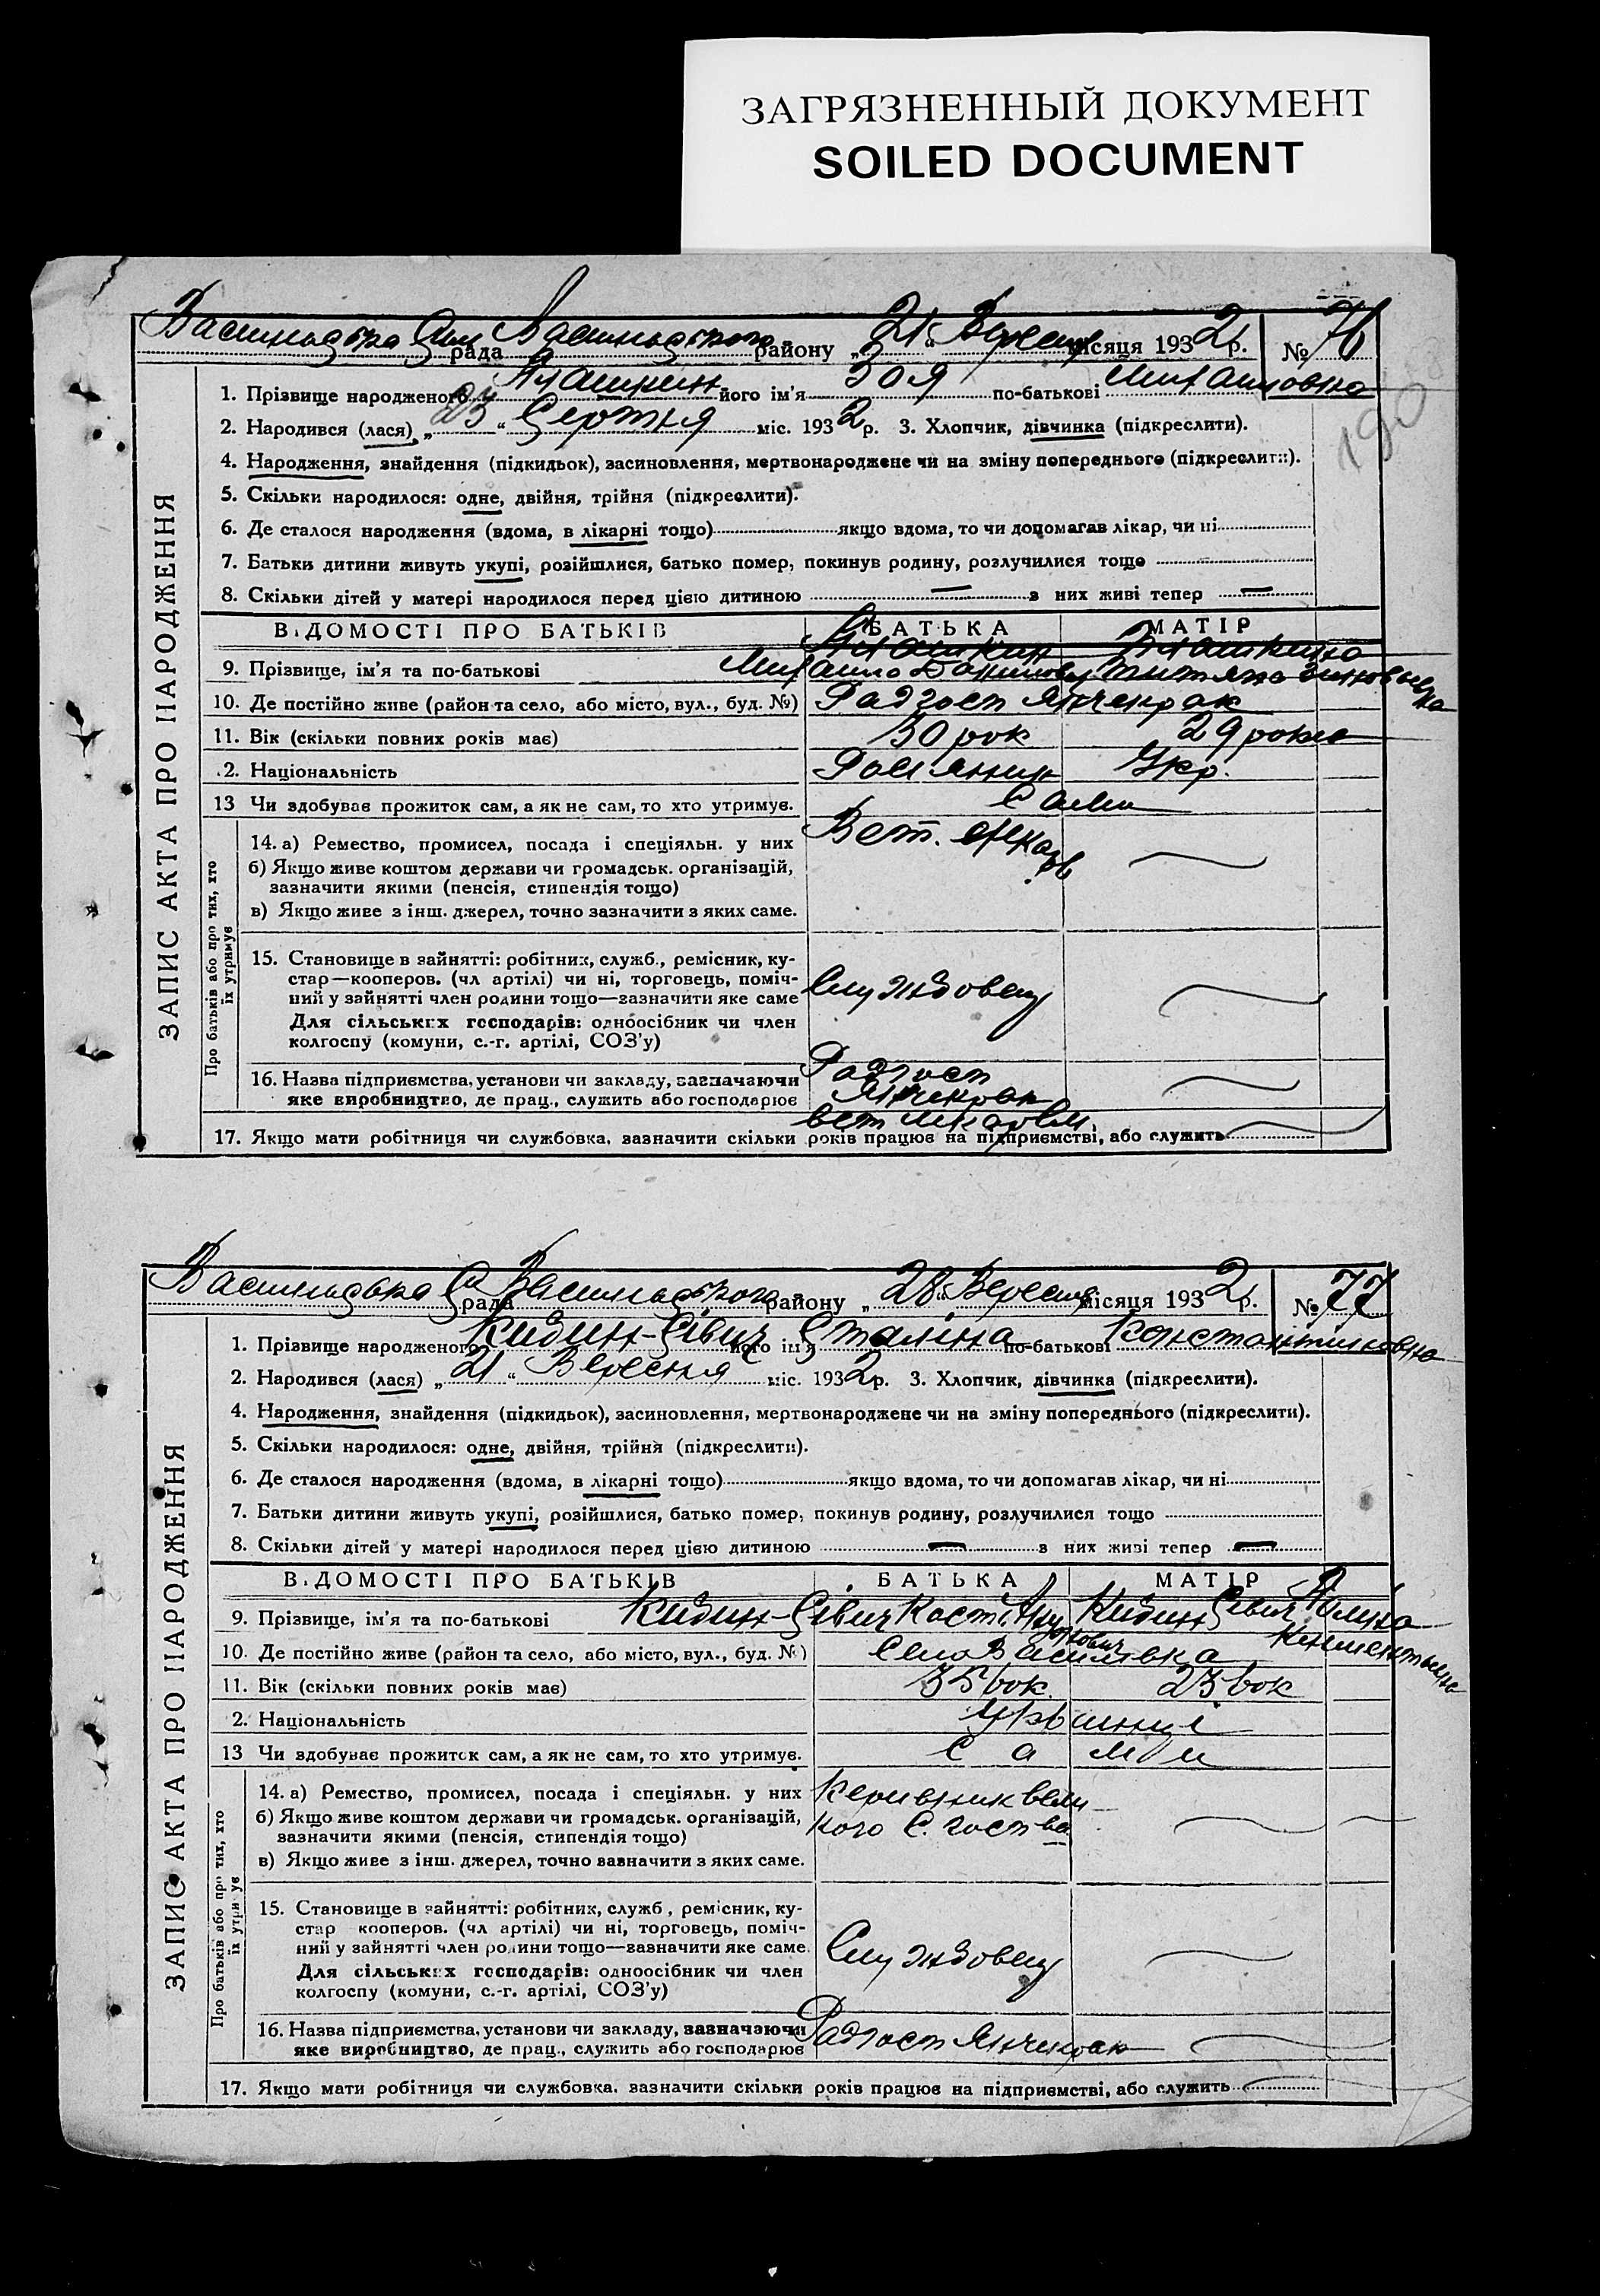 ЗАГРЯЗНЕННЫЙ ДОКУМЕНТ
SOILED DOCUMENT
рада району „21“ місяця 1932 р. № 76
190
1. Прізвище народженого його ім'я Зоя по-батькові
2. Народився (лася) „23“ Серпня міс. 1932 р. 3. Хлопчик, дівчинка (підкреслити).
4. Народження, знайдення (підкидьок), засиновлення, мертвонароджене чи на зміну попереднього (підкреслити).
5. Скільки народилося: одне, двійня, трійня (підкреслити).
6. Де сталося народження (вдома, в лікарні тощо) якщо вдома, то чи допомагав лікар, чи ні
7. Батьки дитини живуть укупі, розійшлися, батько помер, покинув родину, розлучилися тощо
8. Скільки дітей у матері народилося перед цією дитиною — з них живі тепер —
ЗАПИС АКТА ПРО НАРОДЖЕННЯ
ВІДОМОСТІ ПРО БАТЬКІВ БАТЬКА МАТІР
9. Прізвище, ім'я та по-батькові
10. Де постійно живе (район та село, або місто, вул., буд. №) Радгосп Янчекрак
11. Вік (скільки повних років має) 30 рок 29 років
.2. Національність Росіянин Укр.
13 Чи здобуває прожиток сам, а як не сам, то хто утримує. Сами
Про батьків або про тих, хто їх утримує
14. а) Ремество, промисел, посада і спеціяльн. у них Вет.
б) Якщо живе коштом держави чи громадськ. організацій,
зазначити якими (пенсія, стипендія тощо)
в) Якщо живе з інш. джерел, точно зазначити з яких саме.
15. Становище в зайнятті: робітник, служб., ремісник, ку-
стар—кооперов. (чл артілі) чи ні, торговець, поміч-
ний у зайнятті член родини тощо—зазначити яке саме Службовец
Для сільських господарів: одноосібник чи член
колгоспу (комуни, с.-г. артілі, СОЗ'у)
16. Назва підприємства, установи чи закладу, зазначаючи Радгосп
яке виробництво, де прац., служить або господарює Янчекрак
17. Якщо мати робітниця чи службовка, зазначити скільки років працює на підприємстві, або служить
рада району „28“ місяця 1932 р. № 77
1. Прізвище народженого Кибин-Сівич його ім'я Сталіна по-батькові Константиновна
2. Народився (лася) „21“ Вересня міс. 1932 р. 3. Хлопчик, дівчинка (підкреслити).
4. Народження, знайдення (підкидьок), засиновлення, мертвонароджене чи на зміну попереднього (підкреслити).
5. Скільки народилося: одне, двійня, трійня (підкреслити).
6. Де сталося народження (вдома, в лікарні тощо) якщо вдома, то чи допомагав лікар, чи ні
7. Батьки дитини живуть укупі, розійшлися, батько помер, покинув родину, розлучилися тощо
8. Скільки дітей у матері народилося перед цією дитиною — з них живі тепер —
ЗАПИС АКТА ПРО НАРОДЖЕННЯ
ВІДОМОСТІ ПРО БАТЬКІВ БАТЬКА МАТІР
9. Прізвище, ім'я та по-батькові Кибин-Сівич Кост. Кибин Сівич
10. Де постійно живе (район та село, або місто, вул., буд. №) Село Василівка
11. Вік (скільки повних років має) 35 рок. 23 рок
2. Національність Українці
13 Чи здобуває прожиток сам, а як не сам, то хто утримує. Сами
Про батьків або про тих, хто їх утримує
14. а) Ремество, промисел, посада і спеціяльн. у них Керивник вели
б) Якщо живе коштом держави чи громадськ. організацій, кого С. госп-ва
зазначити якими (пенсія, стипендія тощо)
в) Якщо живе з інш. джерел, точно зазначити з яких саме.
15. Становище в зайнятті: робітник, служб, ремісник, ку-
стар кооперов. (чл артілі) чи ні, торговець, поміч-
ний у зайнятті член родини тощо—зазначити яке саме. Службовец
Для сільських господарів: одноосібник чи член
колгоспу (комуни, с.-г. артілі, СОЗ'у)
16. Назва підприємства, установи чи закладу, зазначаючи Радгосп Янчекрак
яке виробництво, де прац., служить або господарює
17. Якщо мати робітниця чи службовка, зазначити скільки років працює на підприємстві, або служить